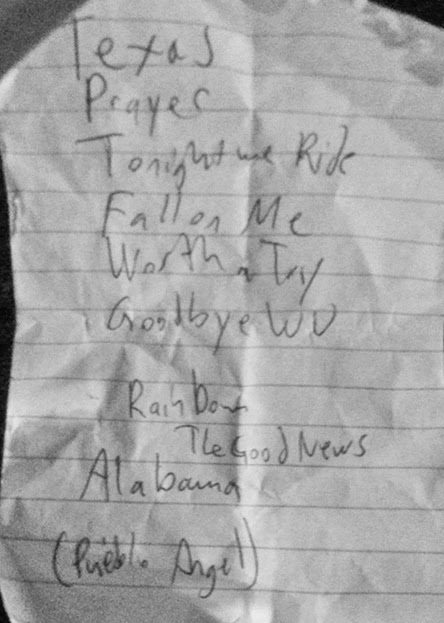 Texas
Prayer
Tonight we Ride
Fall on Me
Worth a Try
Goodbye WV
Rain Down
The Good News
Alabama
(Pueblo Angel)